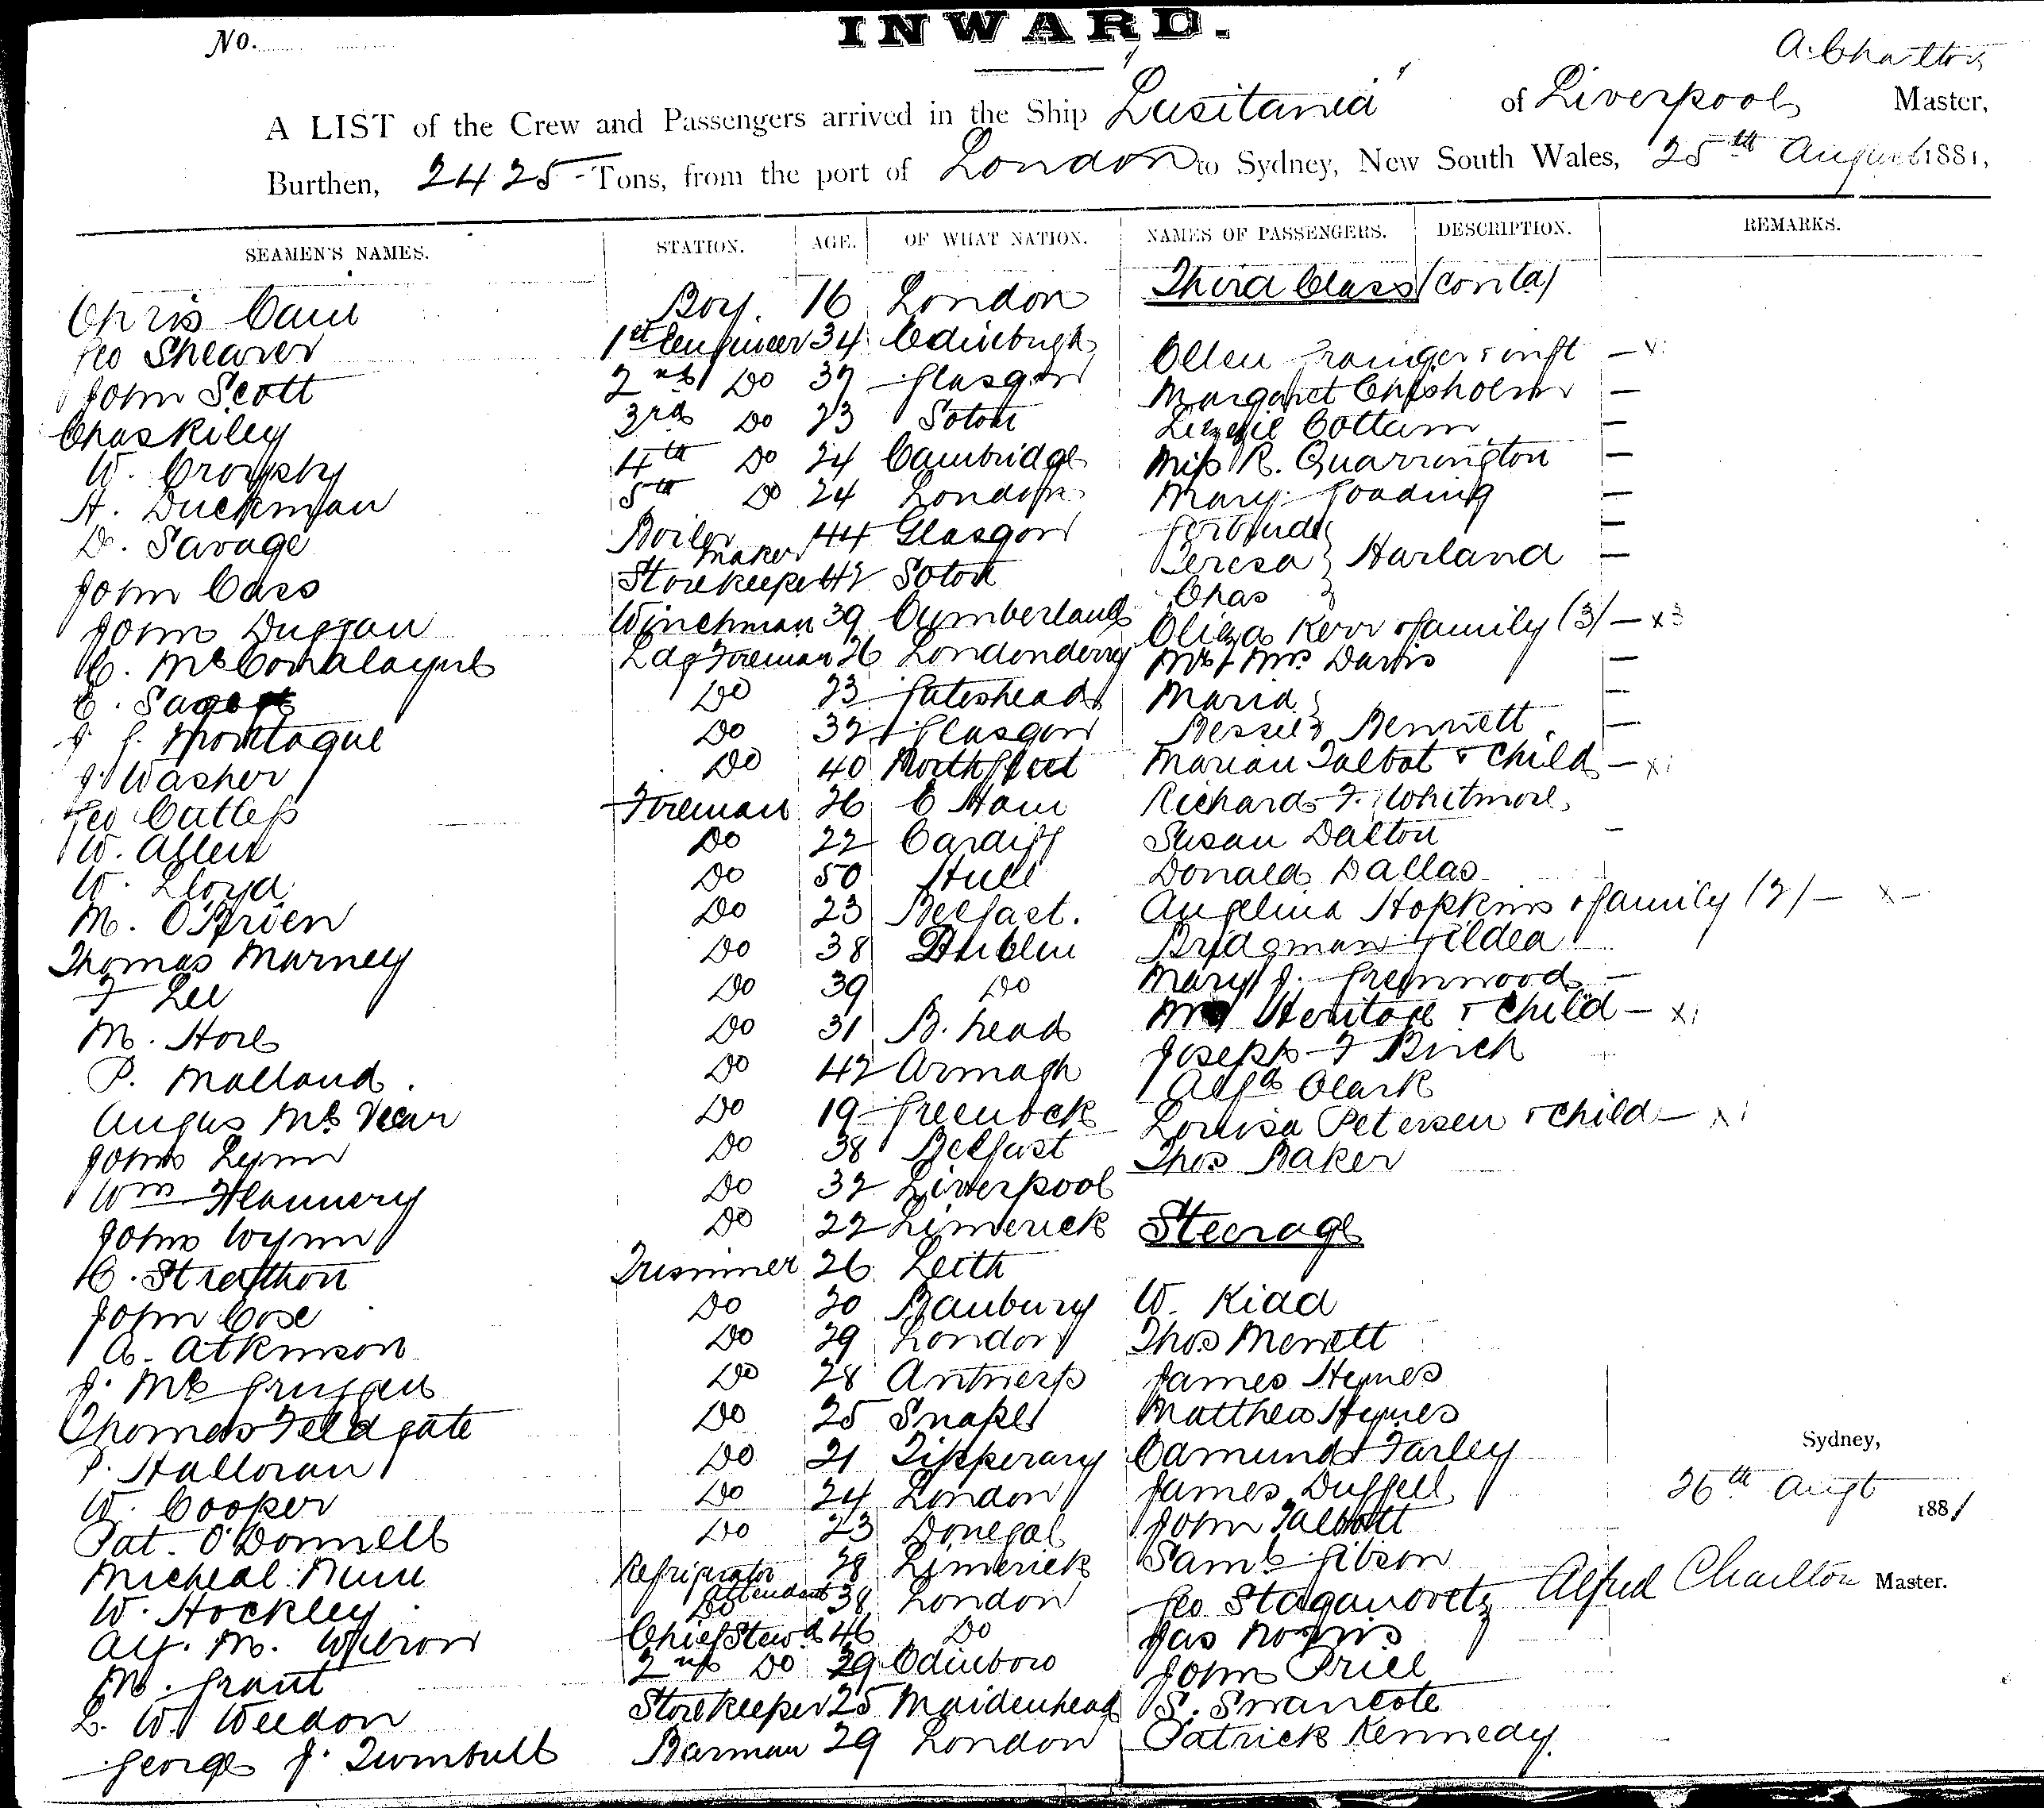 INWARD.
No.
A. Charlton
A LIST of the Crew and Passengers arrived in the Ship "Lusitania" of Liverpool Master,
Burthen, 2425 Tons, from the port of London to Sydney, New South Wales, 25th August 1881,
SEAMEN'S NAMES. STATION. AGE. OF WHAT NATION. NAMES OF PASSENGERS. DESCRIPTION. REMARKS.
Third Class (contd)
Chris Cain Boy. 16 London
Geo Shearer 1st Engineer 34 Edinburgh Ellen Grainger & inft — x1
John Scott 2nd Do 37 Glasgow Margaret Chisholm —
Chas Kiley 3rd Do 23 Soton Lizzie Cottam —
W. Crospby 4th Do 24 Cambridge Miss R. Quarrington —
A. Duckman 5th Do 24 London Mary Goading —
D. Savage Boiler maker 44 Glasgow Gertrude —
John Cass Storekeeper 42 Soton Teresa } Harland —
Chas
John Duggan Winchman 39 Cumberland Eliza Kerr & family (3) — x3
C. Ldg Fireman 26 Londonderry Mr & Mrs Davis —
E. Do 23 Gateshead Maria —
J. G. Montague Do 32 Glasgow Bessie } Bennett —
J. Washer Do 40 Northfleet Marian Talbot & Child — x1
Geo Cutless Fireman 26 E Ham Richard F. Whitmore
W. Allen Do 22 Cardiff Susan Dalton —
W. Lloyd Do 50 Hull Donald Dallas
M. O'Brien Do 23 Belfast. Angelina Hopkins & family (2) — x —
Thomas Marney Do 38 Dublin Bridgman Gildea
F Lee Do 39 Do Mary J. Greenwood —
M. Hore Do 31 B. head Heritage & Child — x1
P. Malland. Do 42 Armagh Joseph F Birch
Angus McVear Do 19 Greenock Alfd Clark
John Lynn Do 38 Belfast Louisa Petersen & Child — x1
Wm Flannery Do 32 Liverpool Thos Baker
John Wynn Do 22 Limerick Steerage
C. Strathon Trimmer 26 Leith
John Cose Do 20 Banbury W. Kidd
A. Atkinson Do 29 London Thos Merrett
J. McGruggen Do 28 Antwerp James Hymes
Thomas Feldgate Do 25 Snape Matthew Hymes
P. Halloran Do 21 Tipperary Edmund Farley
Sydney,
W. Cooper Do 24 London James Duffell
26th Augt 1881
Pat. O'Donnell Do 23 Donegal John Talbott
Micheal Nunn Refrigrator Attendant 28 Limerick Saml Gibson
W. Hockley Do 38 London Geo Staganovetz
Alfred Charlton Master.
Alf. M. Wilson Chief Stewd 46 Do Jas
M. Grant 2nd Do 29 Edinboro John Priel
L. W. Weedon Storekeeper 25 Maidenhead S. Swancote
George J. Turnbull Barman 29 London Patrick Kennedy.